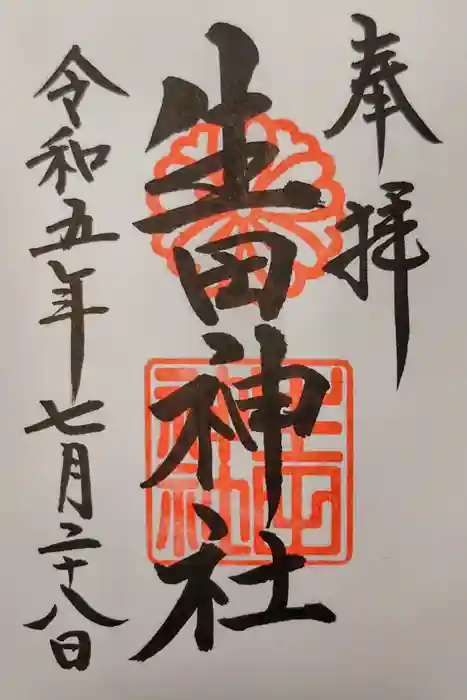 奉拝
生田神社
令和五年七月二十八日